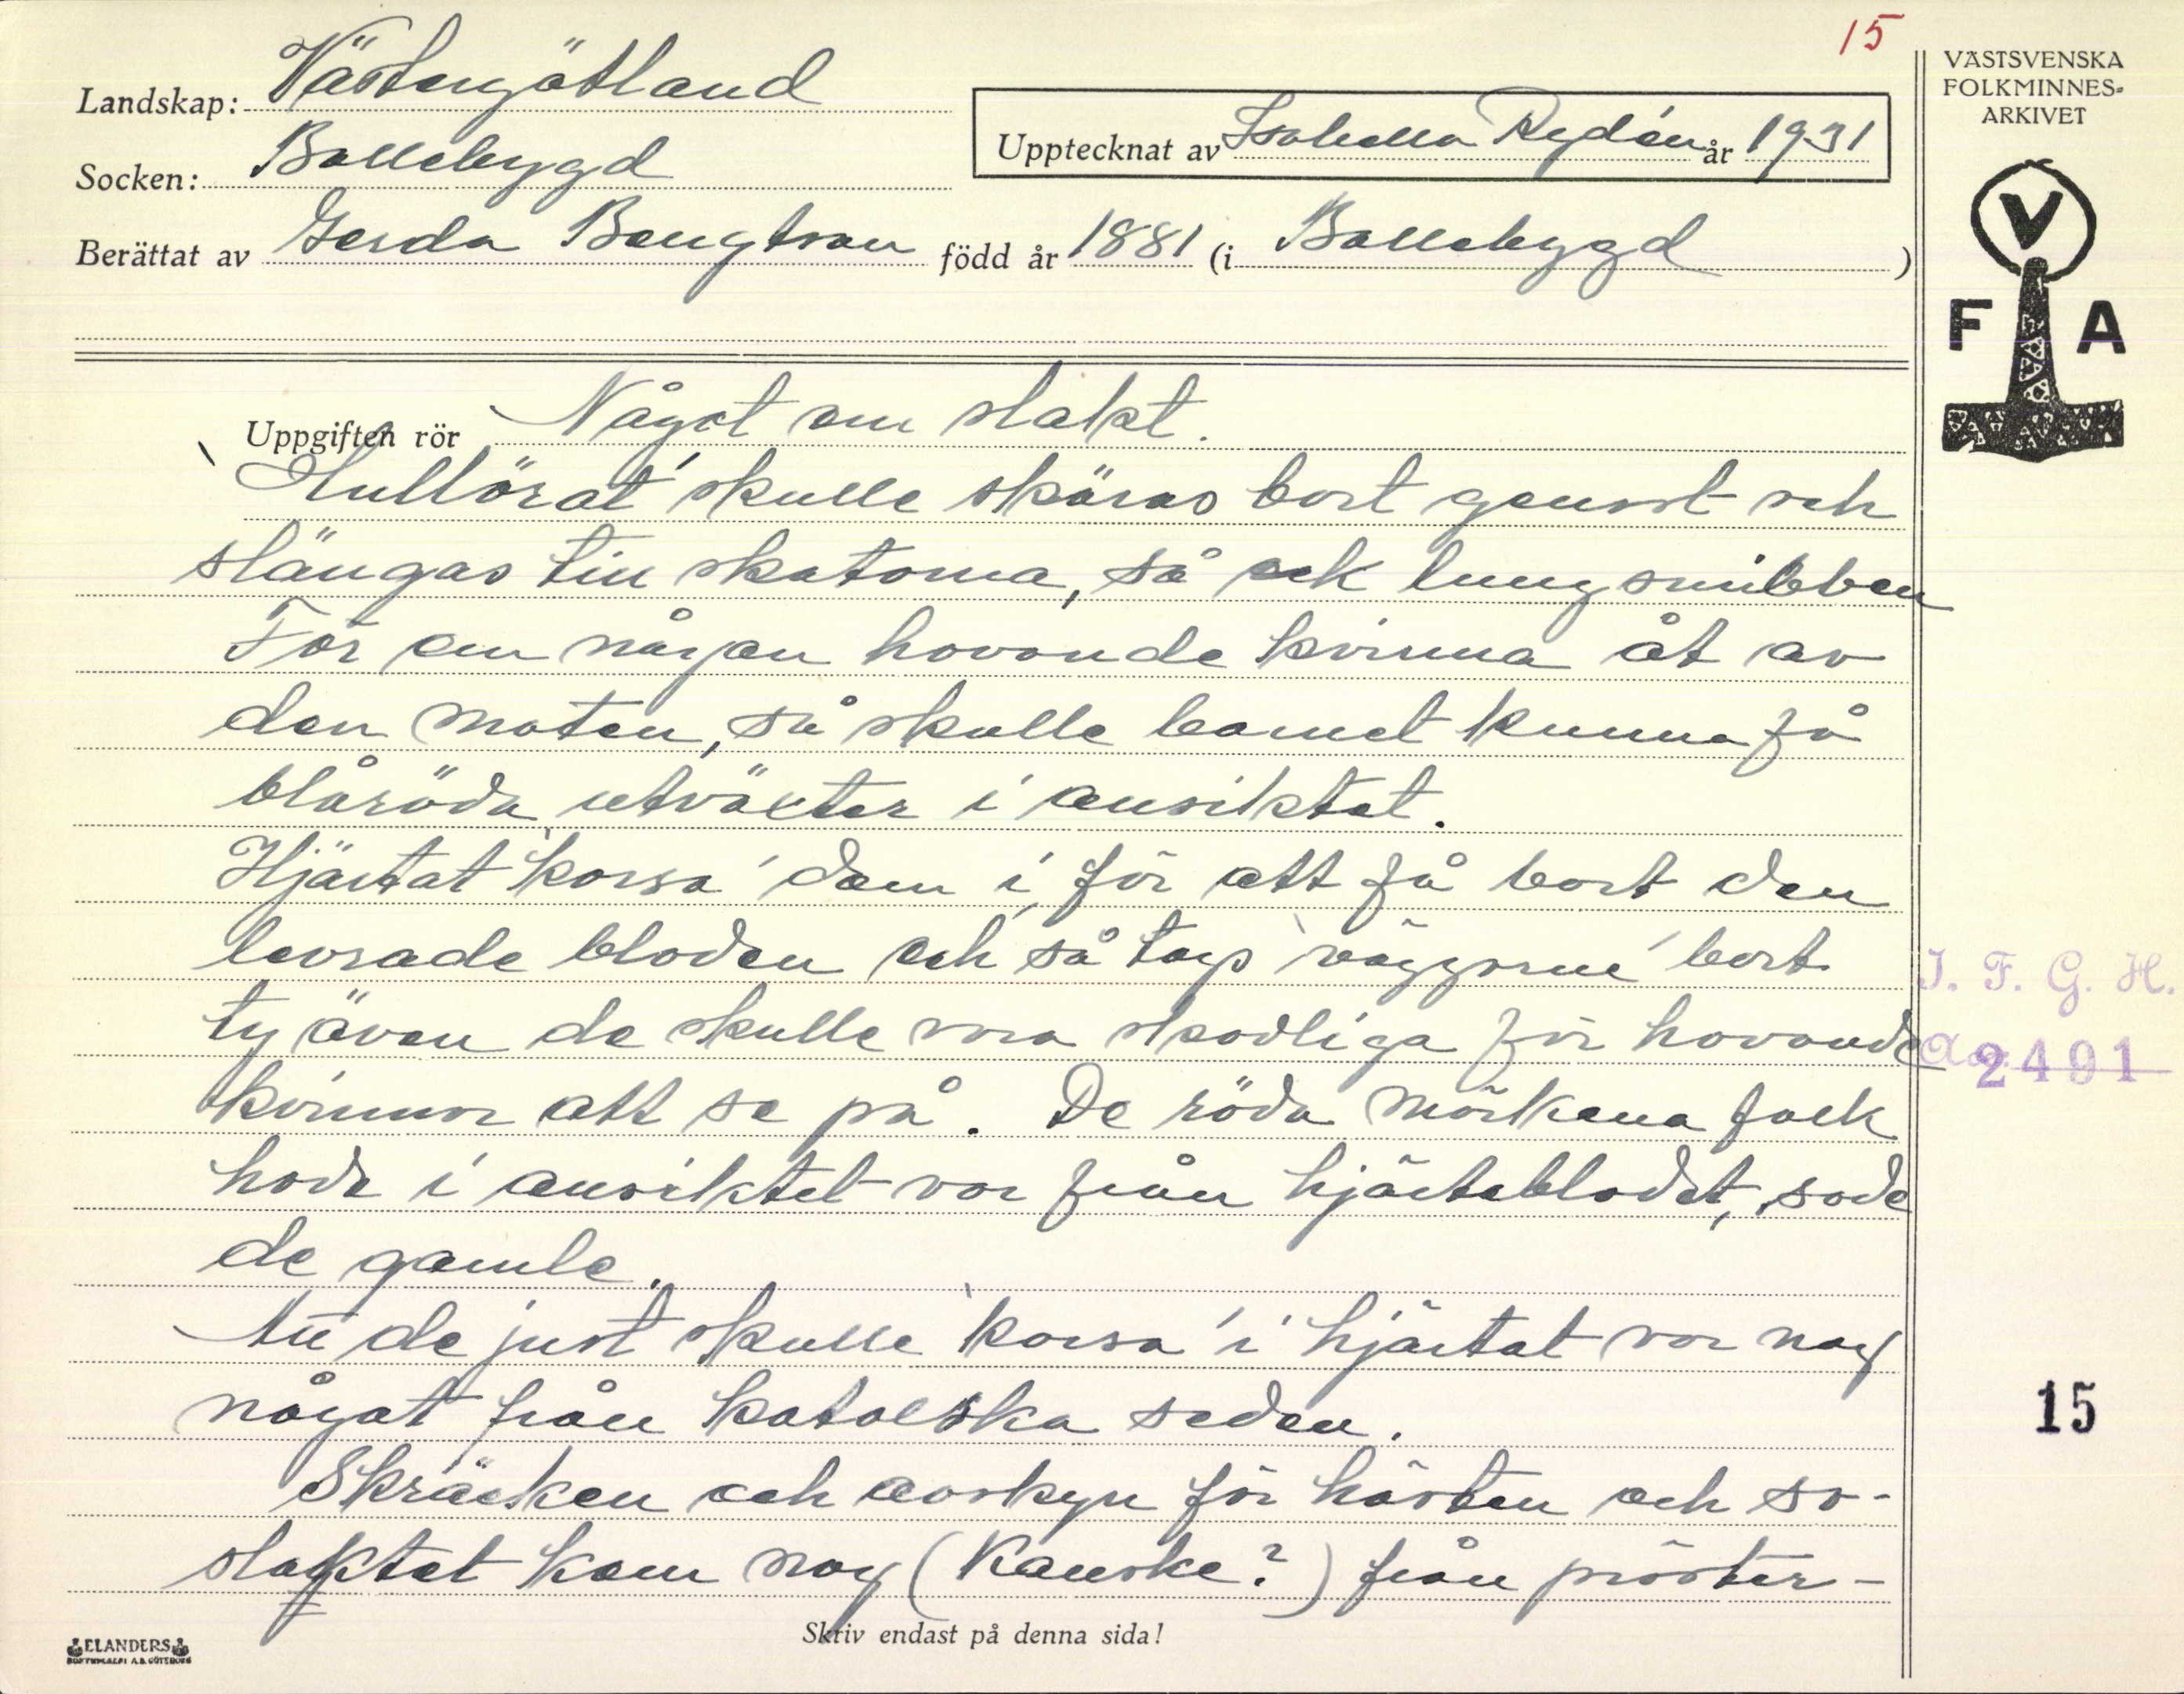 15
VÄSTSVENSKA
FOLKMINNES-
ARKIVET
Landskap: Västergötland
Upptecknat av Isabella Rydén år 1931
Socken: Bollebygd
Berättat av Gerda Bengtson född år 1881 (i Bollebygd)
V
F A
Uppgiften rör Något om slakt.
`Hullörat´ skulle skäras bort genast och
slängas till skatorna, så ock lungsnibben
För om någon havande kvinna åt av
den maten, så skulle barnet kunna få
blåröda utväxter i ansiktet.
Hjärtat `korsa´ dem i, för att få bort den
levrade bloden och så togs `väggorne´ bort
ty även de skulle vara skadliga för havande
kvinnor att se på. De röda märkena folk
hade i ansiktet var från hjärteblodet, sade
de gamle.
Att de just skulle `korsa´ i hjärtat var nog
något från katolska seden.
Skräcken och avskyn för hästen och so-
slaktet kom nog (Kanske?) från präster-
I. F. G. H.
2491
15
Skriv endast på denna sida!
ELANDERS
BOKTRYCKERI A.B. GÖTEBORG